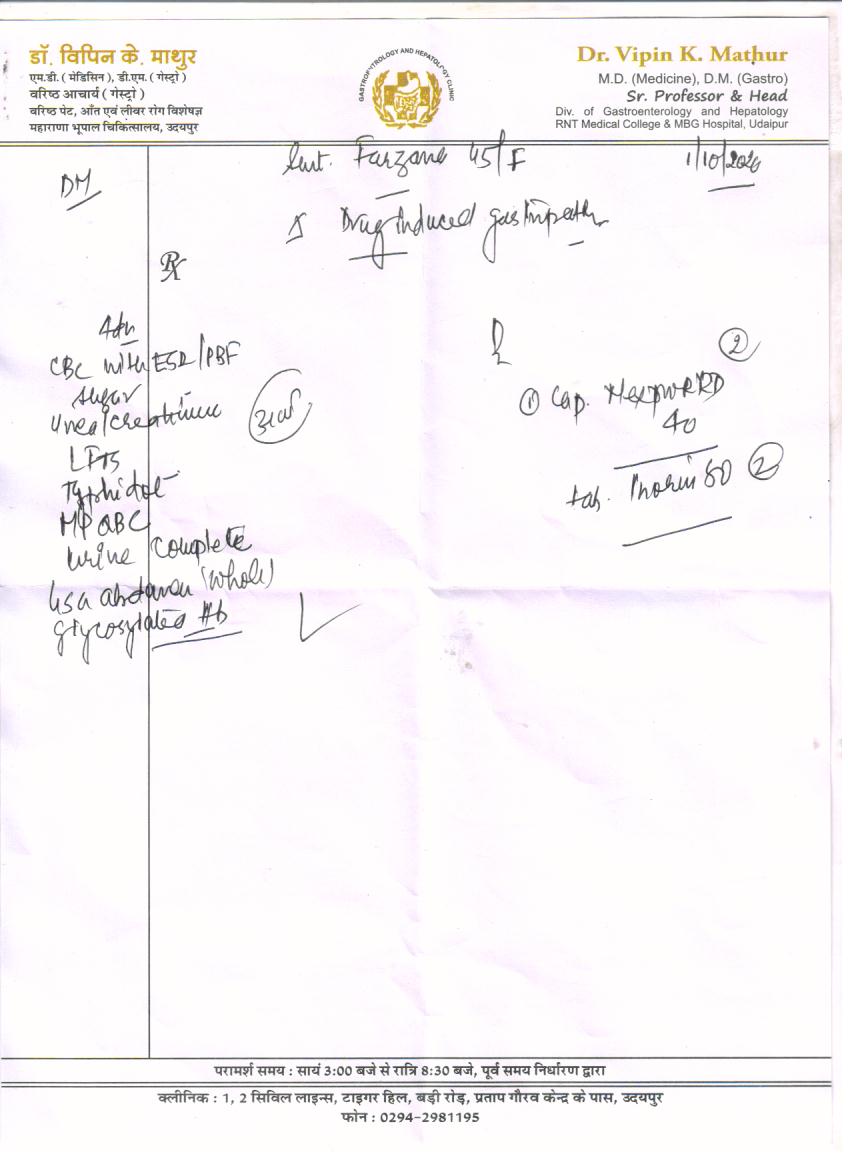 डॉ. विपिन के. माथुर
एम.डी. ( मेडिसिन ), डी.एम. ( गेस्ट्रो )
वरिष्ठ आचार्य ( गेस्ट्रो )
वरिष्ठ पेट, आँत एवं लीवर रोग विशेषज्ञ
महाराणा भूपाल चिकित्सालय, उदयपुर
GASTROENTROLOGY AND HEPATOLOGY CLINIC
Dr. Vipin K. Mathur
M.D. (Medicine), D.M. (Gastro)
Sr. Professor & Head
Div. of Gastroenterology and Hepatology
RNT Medical College & MBG Hospital, Udaipur
Farzana 45/F
1/10/2020
DM
Drug induced
Rx
Adv
CBC with ESR/PBF
Sugar
Urea/creatinine
LFTs
Typhidot
MP QBC
Urine Complete
USG abdomen (whole)
glycosylated Hb
②
① Cap. RD
40
tab. 80 ②
परामर्श समय : सायं 3:00 बजे से रात्रि 8:30 बजे, पूर्व समय निर्धारण द्वारा
क्लीनिक : 1, 2 सिविल लाइन्स, टाइगर हिल, बड़ी रोड़, प्रताप गौरव केन्द्र के पास, उदयपुर
फोन : 0294-2981195